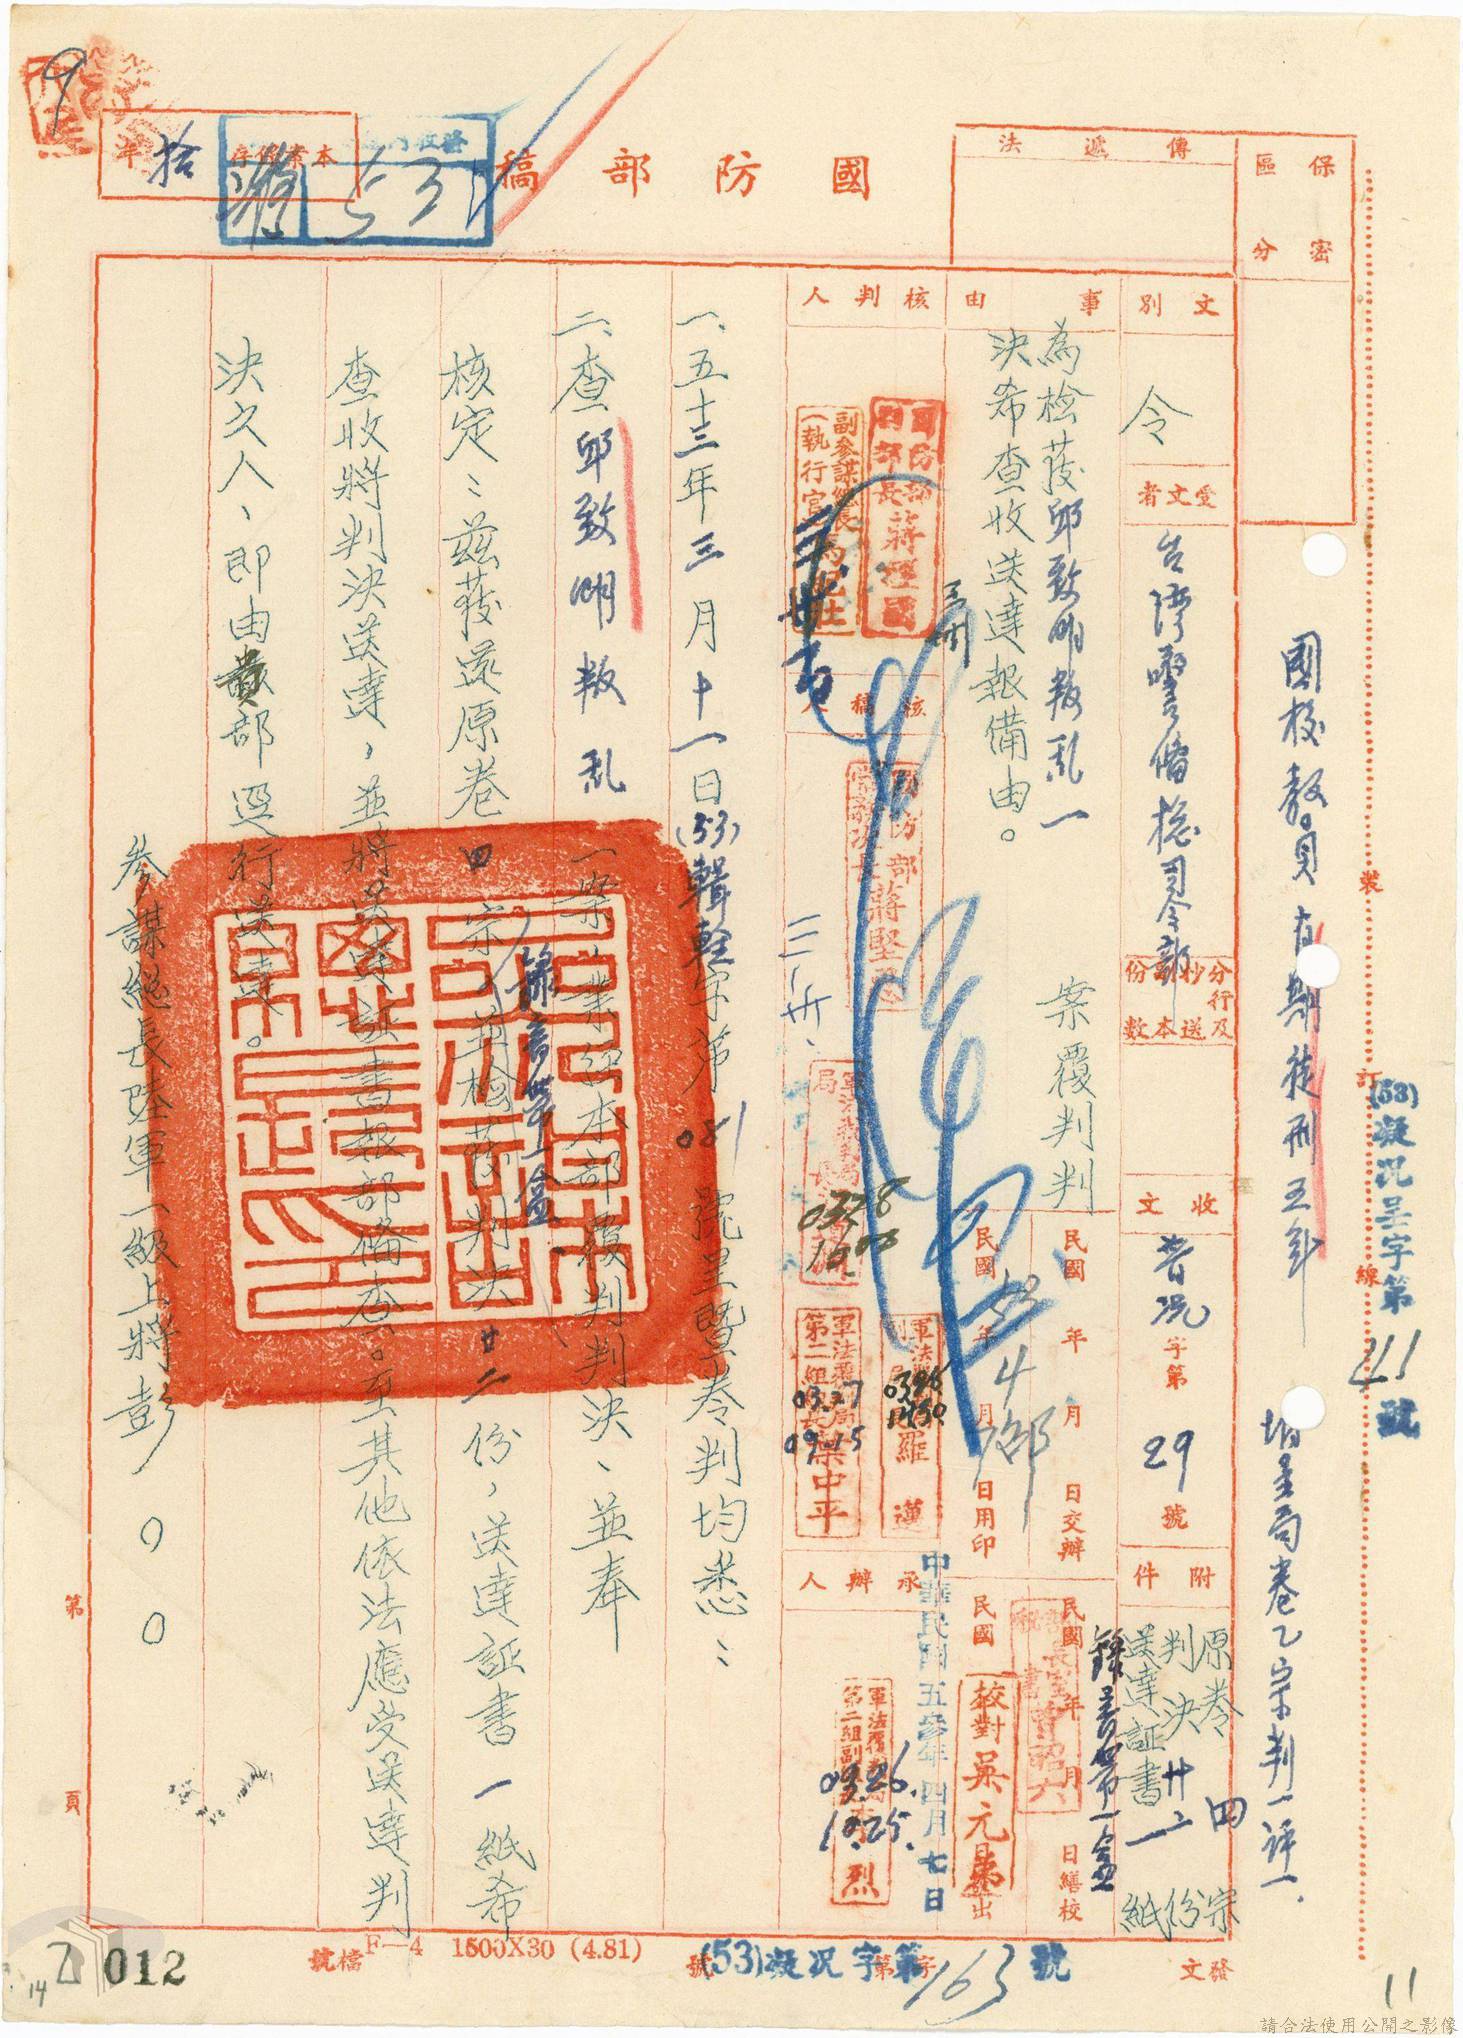 保密區分
傳遞法
國防部稿
本案保存拾年
531
國校教員 有期徒刑五年
(53)凝況呈字第211號
裝
訂
線
文別
令
受文者
台灣警備總司令部
分行及抄送副本份數
收文
字第29號
附件
原卷四宗
判決廿二份
送達証書一紙
錄音帶一盒
事由
為檢發邱致明叛乱一案覆判判
決希查收送達報備由。
民國 年 月 日交辦
民國 年 月 日繕校
民國 年4月 日用印
民國
校對吳元
中華民國五參年四月七日
核判人
國防部副部長蔣經國
副參謀總長(執行官)馬紀壯
核稿人
國防部常務次長蔣堅忍
0328
1600
軍法覆判局副局長羅邁
軍法覆判局第二組組長梁中平
03.27
09.15
承辦人
03.26.
10.25.
一、五十三年三月十一日(53)輯輕字第081號呈暨卷判均悉：
二、查邱致明叛乱一案業經本部覆判判決、並奉
核定：茲發還原卷四宗、錄音帶一盒、並檢發判決廿二份，送達証書一紙希
查收將判決送達，並將送達証書報部備查。至其他依法應受送達判
決之人、即由貴部逕行送達。
參謀總長陸軍一級上將彭○○
第 頁
發文
(53)凝況字第163號
檔號
F—4 1500X30 (4.81)
乙012
14
11
請合法使用公開之影像